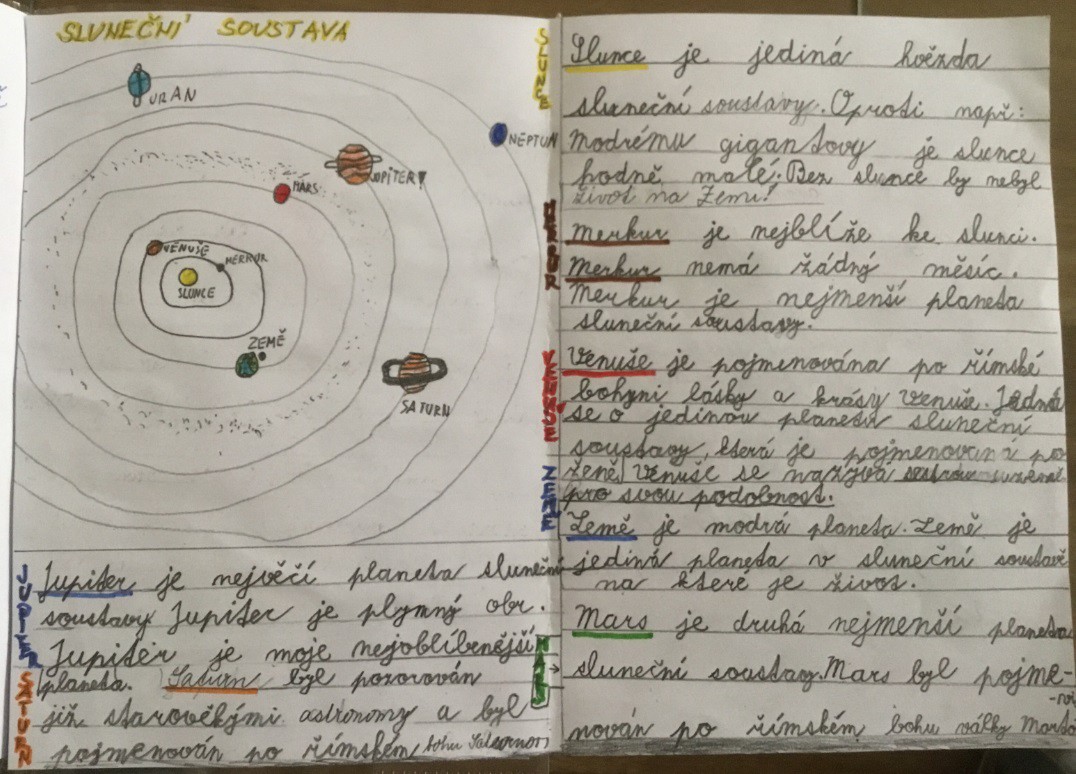 SLUNEČNÍ SOUSTAVA
URAN
NEPTUN
JUPITER!
MARS
VENUŠE
MERKUR
SLUNCE
ZEMĚ
SATURN
JUPITER
Jupiter je největčí planeta sluneční
soustavy Jupiter je plynný obr.
Jupiter je moje nejoblíbenější
planeta. Saturn byl pozorován
již starověkými astronomy a byl
pojmenován po římském bohu
SATURN
SLUNCE
Slunce je jediná hvězda
sluneční soustavy. Oproti např:
Modrému gigantovy je slunce
hodně malé. Bez slunce by nebyl
život na Zemi!
MERKUR
Merkur je nejblíže ke slunci.
Merkur nemá žádný měsíc.
Merkur je nejmenší planeta
sluneční soustavy.
VENUŠE
Venuše je pojmenována po římské
bohyni lásky a krásy Venuše. Jedná
se o jedinou planetu sluneční
soustavy, která je pojmenovaná po
ženě. Venuše se nazývá
pro svou podobnost.
ZEMĚ
Země je modrá planeta. Země je
jediná planeta v sluneční soustavě
na které je život.
MARS
Mars je druhá nejmenší planeta
sluneční soustavy. Mars byl pojme-
nován po římském bohu války